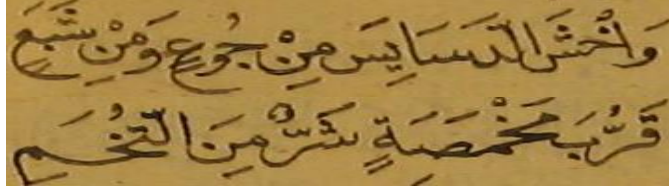 وَاْخْشَ الدَّسَايِسَ مِنْ جُوعٍ وَمِنْ شَبَعٍ
فَرُبَّ مَخْمَصَةٍ شَرٌّ مِنَ التُّخَمِ